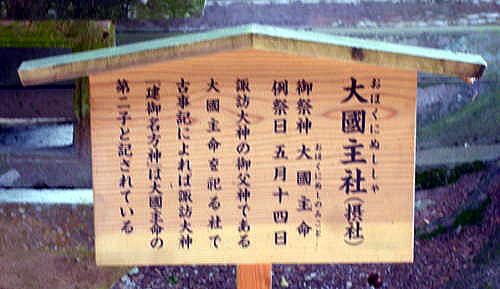 おほくにぬししや
大國主社(摂社)
おほくにぬしのみこと
御祭神 大國主命
例祭日 五月十四日
諏訪大神の御父神である
大國主命を祀る社で
古事記によれば諏訪大神
「建御名方神は大國主命の
第二子と記されている